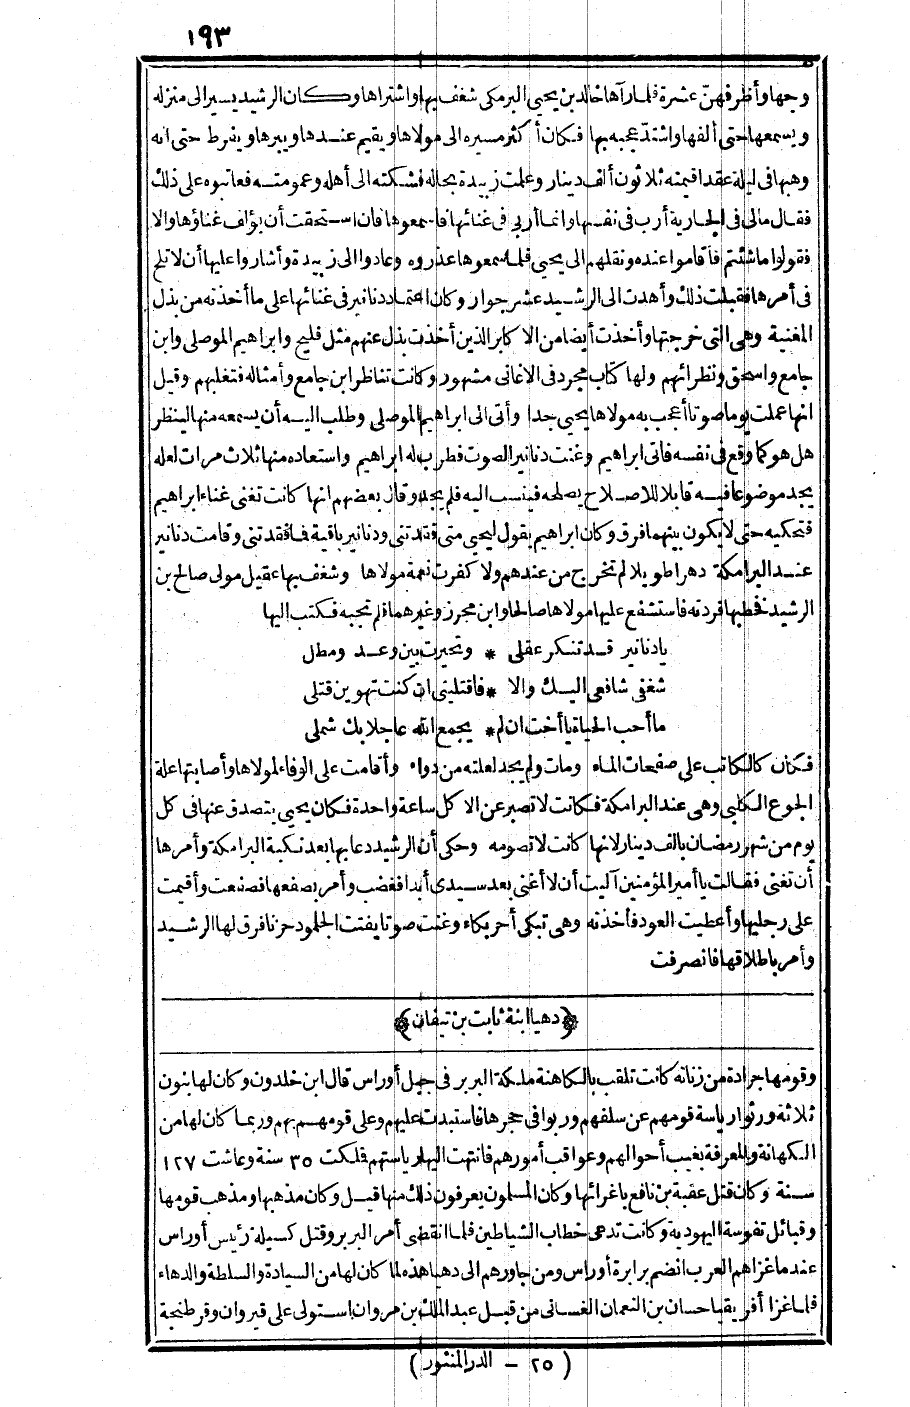 ١٩٣
وجها وأظرفهن عشرة فلما رآها خالد بن يحيى البرمكي شغف بها واشتراها وكان الرشيد يسير الى منزله
ويسمعها حتى ألفها واشتد عجبه بها فكان أكثر مسيره الى مولاها ويقيم عندها ويبرها ويفرط حتى انه
وهبها في ليلة عقدا قيمته ثلاثون ألف دينار وعلمت زبيدة بحاله فشكته الى أهله وعمومته فعاتبوه على ذلك
فقال مالى فى الجارية أرب فى نفسها وانما أربى فى غنائها فاسمعوها فان استحقت أن يؤلف غناؤها والا
فقولوا ماشئتم فأقاموا عنده ونقلهم الى يحيى فلما سمعوها عذروه وعادوا الى زبيدة وأشاروا عليها أن لا تلح
فى أمرها فقبلت ذلك وأهدت الى الرشيد عشر جوار وكان اعتماد دنانير فى غنائها على ما أخذته من بذل
المغنية وهى التى خرجتها وأخذت أيضا من الاكابر الذين أخذت بذل عنهم مثل فليح وابراهيم الموصلى وابن
جامع واسحق ونظرائهم ولها كتاب مجرد فى الاغانى مشهور وكانت تناظر ابن جامع وأمثاله فتغلبهم وقيل
انها عملت يوما صوتا أعجب به مولاها يحيى جدا وأتى الى ابراهيم الموصلى وطلب اليه أن يسمعه منها لينظر
هل هو كما وقع فى نفسه فاتى ابراهيم وغنت دنانير الصوت فطرب له ابراهيم واستعاده منها ثلاث مرات لعله
يجد موضوعا فيه قابلا للاصلاح يصلحه فينسب اليه فلم يجد وقال بعضهم انها كانت تغنى غناء ابراهيم
فتحكيه حتى لا يكون بينهما فرق وكان ابراهيم يقول ليحيى متى فقدتنى ودنانير باقية فما فقدتنى وقامت دنانير
عند البرامكة دهرا طويلا لم تخرج من عندهم ولا كفرت نعمة مولاها وشغف بها عقيل مولى صالح بن
الرشيد فخطبها فردته فاستشفع عليها مولاها صالحا وابن محرز وغيرهما فلم تجبه فكتب اليها
يادنانير قد تنكر عقلى * وتحيرت بين وعد ومطل
شغفى شافعى اليك والا * فاقتلينى ان كنت تهوين قتلى
ما أحب الحياة يا أخت ان لم * يجمع الله عاجلا بك شملى
فكان كالكاتب على صفحات الماء ومات ولم يجد لعلته من دواء وأقامت على الوفاء لمولاها وأصابتها علة
الجوع الكلبى وهى عند البرامكة فكانت لا تصبر عن الاكل ساعة واحدة فكان يحيى يتصدق عنها فى كل
يوم من شهر رمضان بالف دينار لانها كانت لا تصومه وحكى أن الرشيد دعا بها بعد نكبة البرامكة وأمرها
أن تغنى فقالت يا أمير المؤمنين آليت أن لا أغنى بعد سيدى أبدا فغضب وأمر بصفعها فصفعت وأقيمت
على رجليها وأعطيت العود فأخذته وهى تبكى أحر بكاء وغنت صوتا يفتت الجلمود حزنا فرق لها الرشيد
وأمر باطلاقها فانصرفت
﴿دهيا ابنة ثابت بن تيفان﴾
وقومها جرادة من زناته كانت تلقب بالكاهنة ملكة البربر فى جبل أوراس قال ابن خلدون وكان لها بنون
ثلاثة ورثوا رياسة قومهم عن سلفهم وربوا فى حجرها فاستبدت عليهم وعلى قومهم بهم وربما كان لها من
الكهانة والمعرفة بغيب أحوالهم وعواقب أمورهم فانتهت اليها رياستهم فملكت ٣٥ سنة وعاشت ١٢٧
سنة وكان قتل عقبة بن نافع باغرائها وكان المسلمون يعرفون ذلك منها قبل وكان مذهبها ومذهب قومها
وقبائل نفوسة اليهودية وكانت تدعى خطاب الشياطين فلما انقضى أمر البربر وقتل كسيلة رئيس أوراس
عندما غزاهم العرب انضم برابرة أوراس ومن جاورهم الى دهيا هذه لما كان لها من السيادة والسلطة والدهاء
فلما غزا أفريقيا حسان بن النعمان الغسانى من قبل عبد الملك بن مروان استولى على قيروان وقرطجنة
(٢٥ - الدر المنثور)